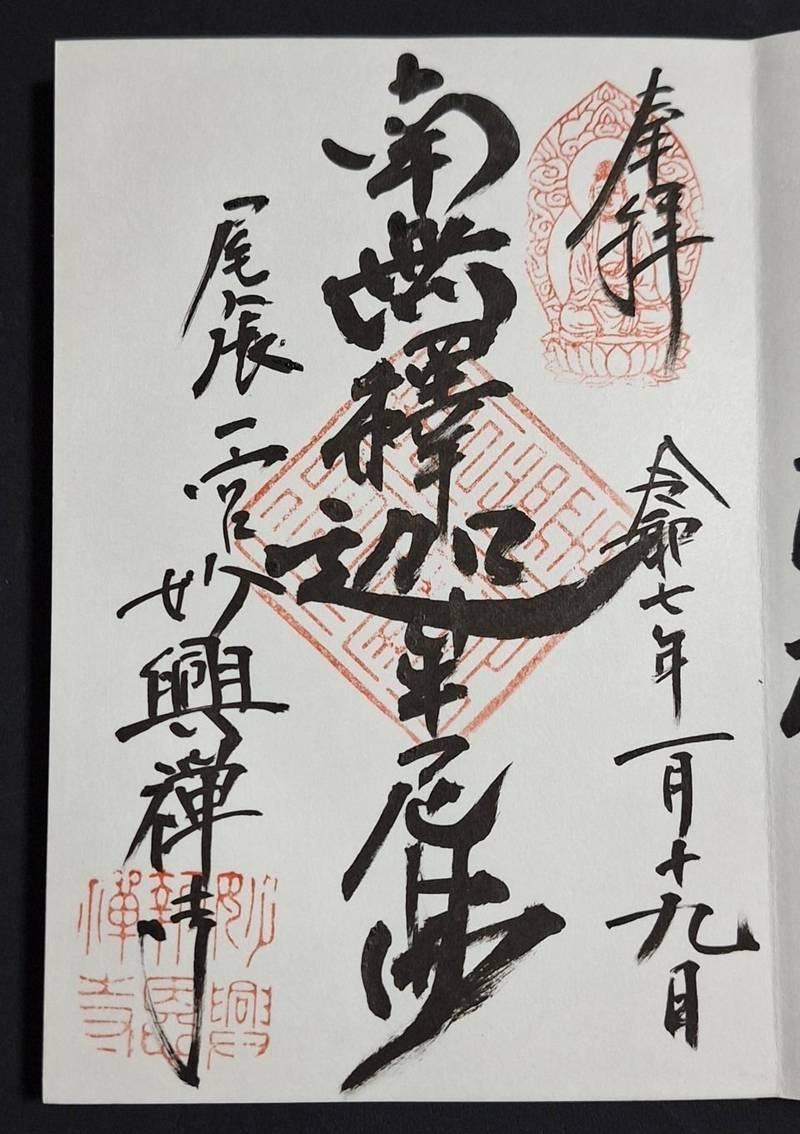 奉拝
令和七年一月十九日
南無釋迦牟尼佛
尾張一宮妙興禅寺
妙興
報恩
禅寺